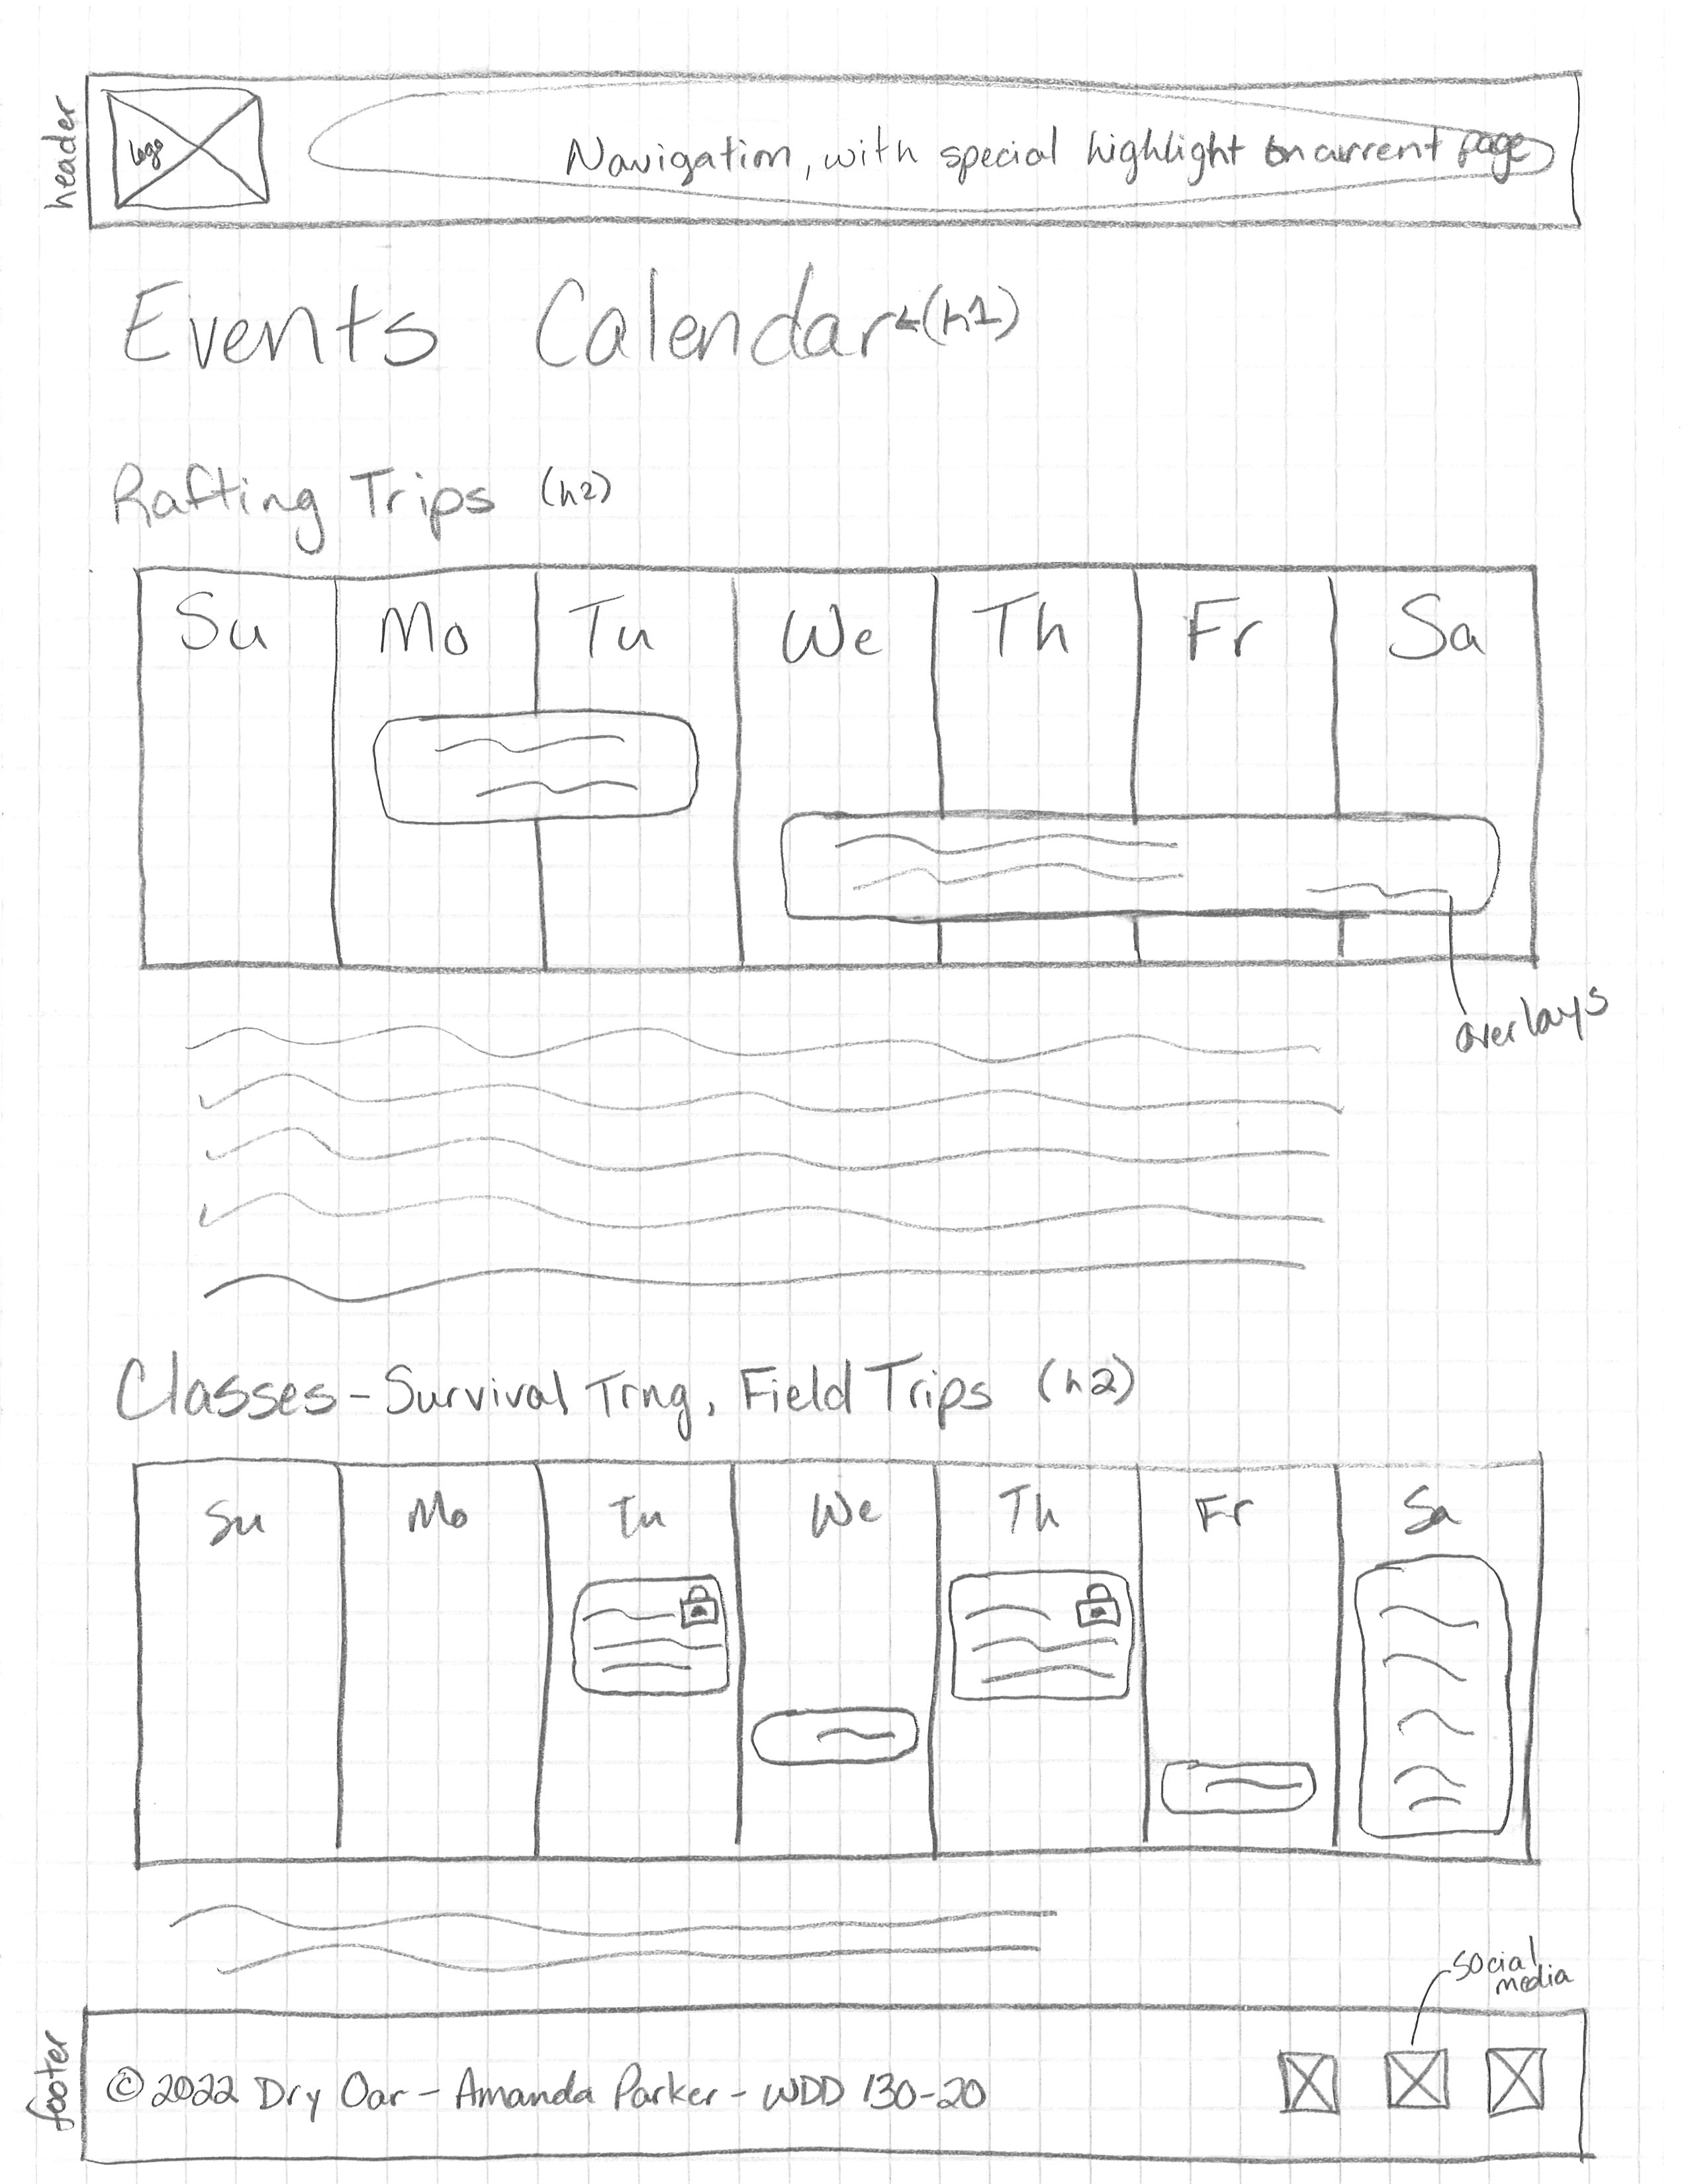 header
logo
Navigation, with special highlight on current page
Events Calendar ←(h1)
Rafting Trips (h2)
Su Mo Tu We Th Fr Sa
overlays
Classes - Survival Trng, Field Trips (h2)
Su Mo Tu We Th Fr Sa
social
media
footer
© 2022 Dry Oar - Amanda Parker - WDD 130-20